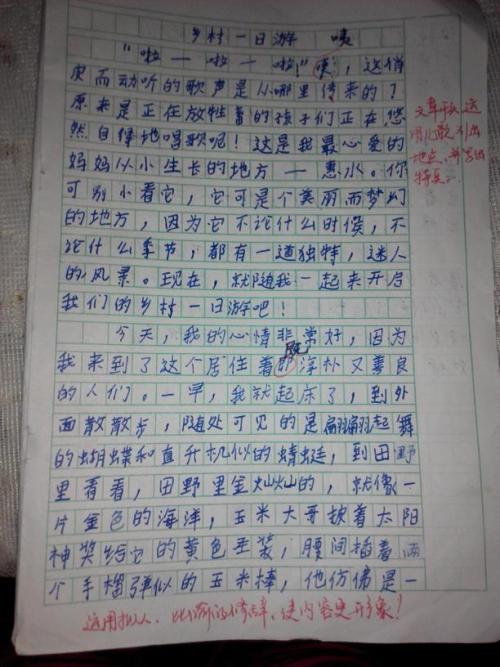 乡村一日游 咦
“啦—啦—啦！”咦，这俏
皮而动听的歌声是从哪里传来的？
原来是正在放牲畜的孩子们正在悠
然自得地唱歌呢！这是我最心爱的
妈妈从小生长的地方—惠水。你
可别小看它，它可是个美丽而梦幻
的地方，因为它不论什么时候，不
论什么季节，都有一道独特，迷人
的风景。现在，就随我一起来开启
我们的乡村一日游吧！
今天，我的心情非常好，因为
我来到了这个居住着既淳朴又善良
的人们。一早，我就起床了，到外
面散散步，随处可见的是翩翩起舞
的蝴蝶和直升机似的蜻蜓，到田野
里看看，田野里金灿灿的，就像一
片金色的海洋，玉米大哥披着太阳
神奖给它的黄色圣装，腰间插着两
个手榴弹似的玉米棒，他仿佛是一
文章开头
地点，并写出
特点。
运用拟人、比喻的修辞，使内容更形象！